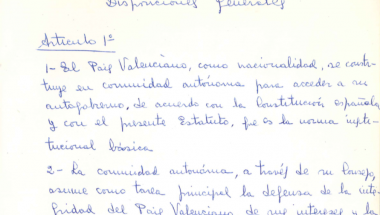 Disposiciones Generales
Artículo 1º
1- El País Valenciano, como nacionalidad, se consti-
tuye en comunidad autónoma para acceder a su
autogobierno, de acuerdo con la Constitución española
y con el presente Estatuto, que es la norma insti-
tucional básica.
2- La comunidad autónoma, a través de su Consejo,
asume como tarea principal la defensa de la inte-
gridad del País Valenciano de sus intereses y la